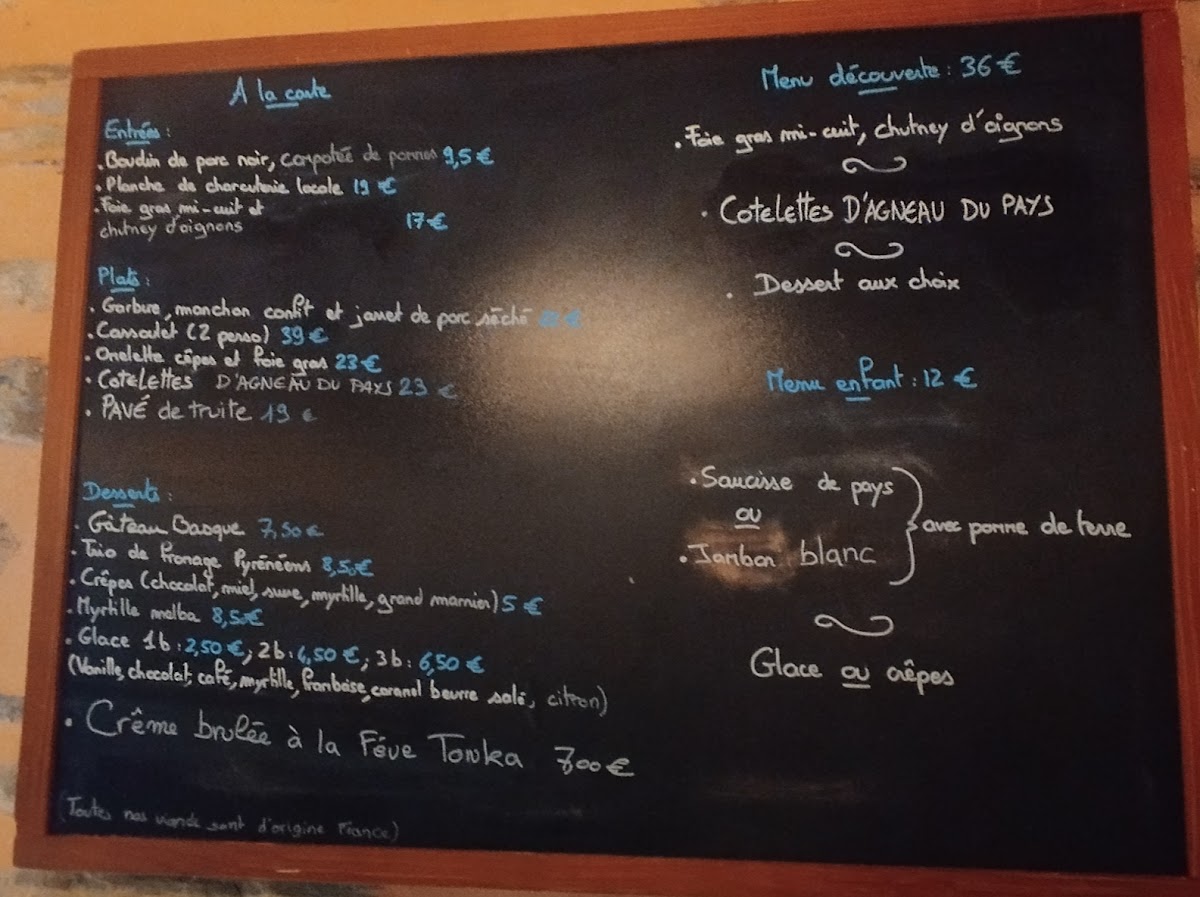 A la carte
Entrées :
. Boudin de porc noir, compotée de pommes 9,5 €
. Planche de charcuterie locale 19 €
. Foie gras mi-cuit et
chutney d'oignons 17 €
Plats :
. Garbure, manchon confit et jarret de porc séché €
. Cassoulet (2 perso) 39 €
. Omelette cêpes et foie gras 23 €
. COTELETTES D'AGNEAU DU PAYS 23 €
. PAVÉ de truite 19 €
Desserts :
. Gâteau Basque 7,50 €
. Trio de fromage Pyrénéens 8,50€
. Crêpes (chocolat, miel, sucre, myrtille, grand marnier) 5 €
. Myrtille melba 8,50€
. Glace 1b : 2,50 € ; 2b : 4,50 € ; 3b : 6,50 €
(Vanille, chocolat, café, myrtille, framboise, caramel beurre salé, citron)
. Crême brulée à la Fève Tonka 7,00 €
(Toutes nos viande sont d'origine France)
Menu découverte : 36 €
. Foie gras mi-cuit, chutney d'oignons
. COTELETTES D'AGNEAU DU PAYS
. Dessert aux choix
Menu enfant : 12 €
. Saucisse de pays
ou
. Jambon blanc
avec pomme de terre
Glace ou crêpes